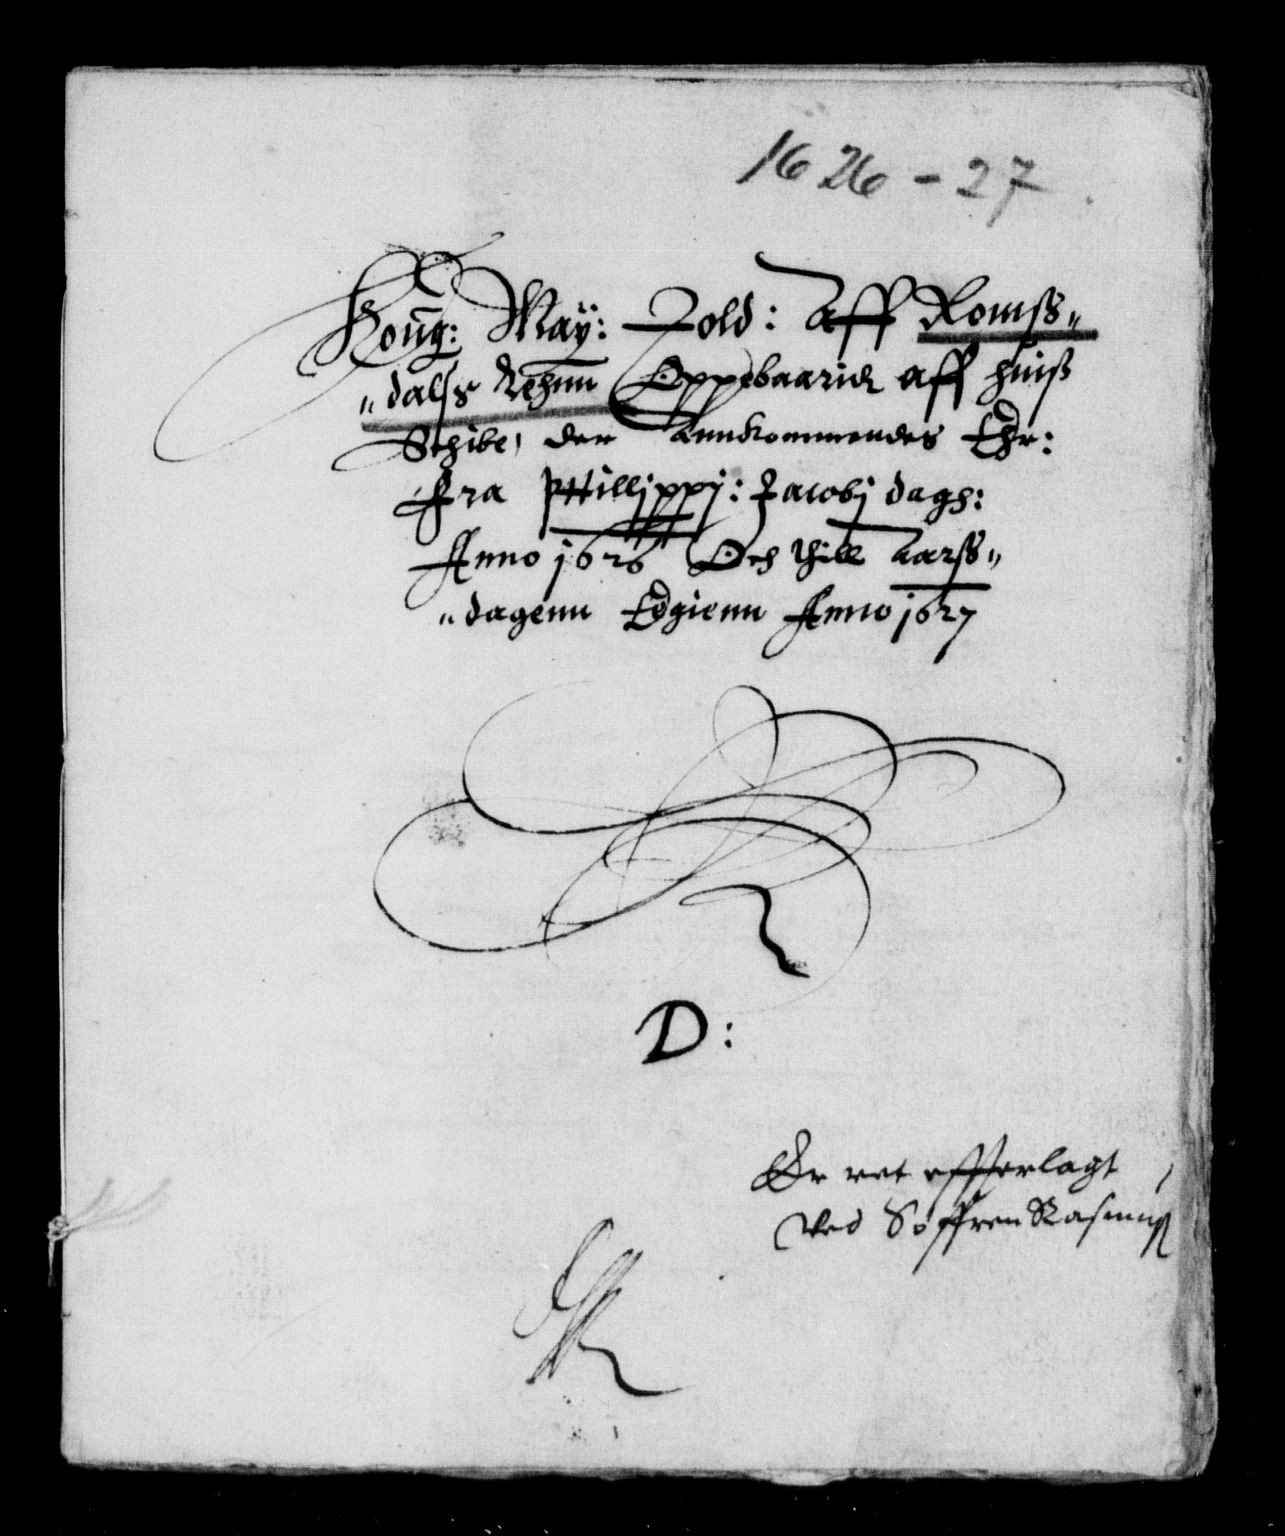 1626-27
Kong: May: Told: aff Romss„
„dalss Lehnn Oppebaaridt aff huiss
Schibe, der Annkommendes Ehr:
Fra Phillippj: Jacobj dagh:
Anno 1626 Och thill aarss„
„dagenn Edgienn Anno 1627
D:
Er ret offuerlagt
Ved Søffren Rasmuss